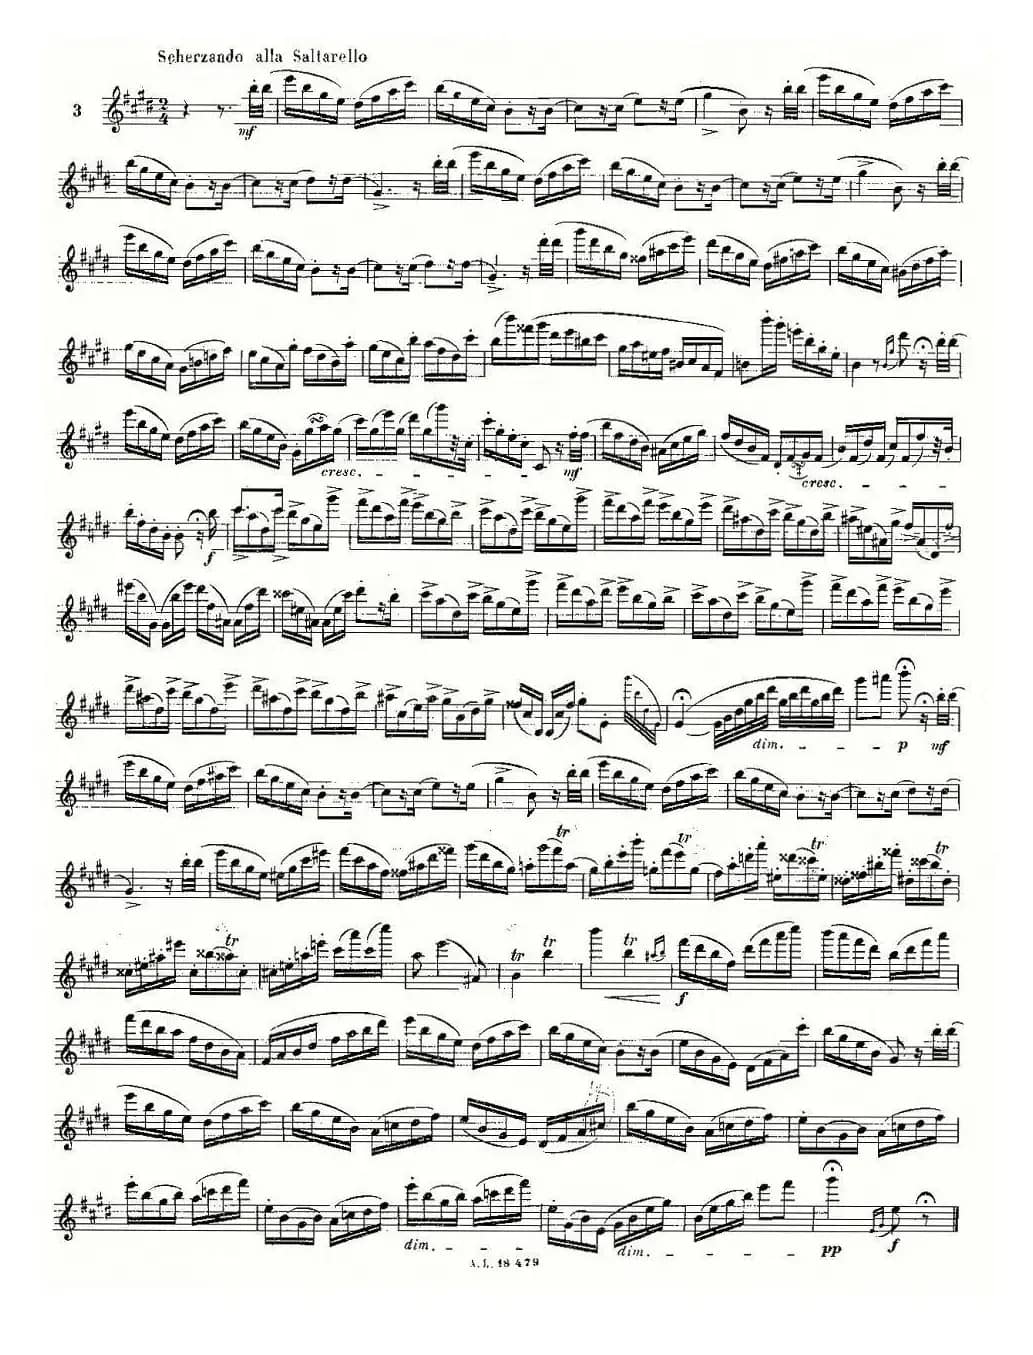 Scherzando alla Saltarello
3
2
4
mf
cresc.
mf
cresc.
f
dim.
p
mf
tr
tr
tr
tr
tr
tr
tr
tr
f
dim.
dim.
pp
f
A.L. 18 479